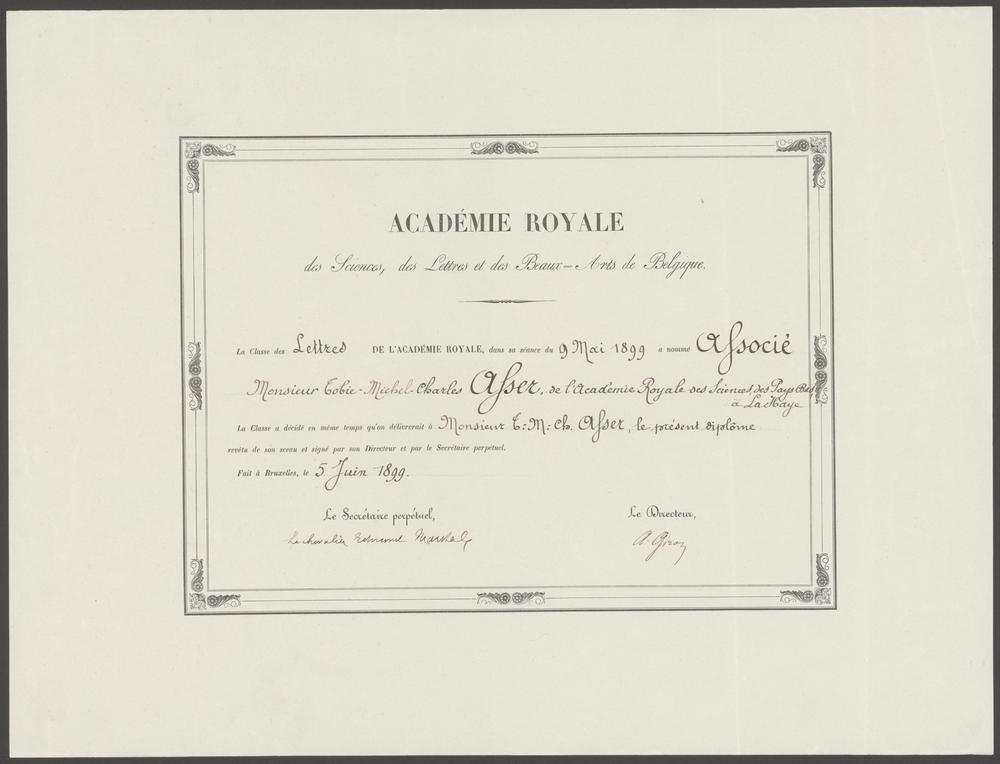 ACADÉMIE ROYALE
des Sciences, des Lettres et des Beaux-Arts de Belgique.
La Classe des Lettres DE L'ACADÉMIE ROYALE, dans sa séance du 9 Mai 1899 a nommé Associé
Monsieur Tobie-Michel-Charles Asser, de l'Académie Royale des Sciences, des Pays-Bas
à La Haye
La Classe a décidé en même temps qu'on délivrerait à Monsieur T: M: Ch. Asser, le présent diplôme
revêtu de son sceau et signé par son Directeur et par le Secrétaire perpétuel.
Fait à Bruxelles, le 5 Juin 1899.
Le Secrétaire perpétuel,
Le Directeur,
Le chevalier Edmond Marchal
A. Giron